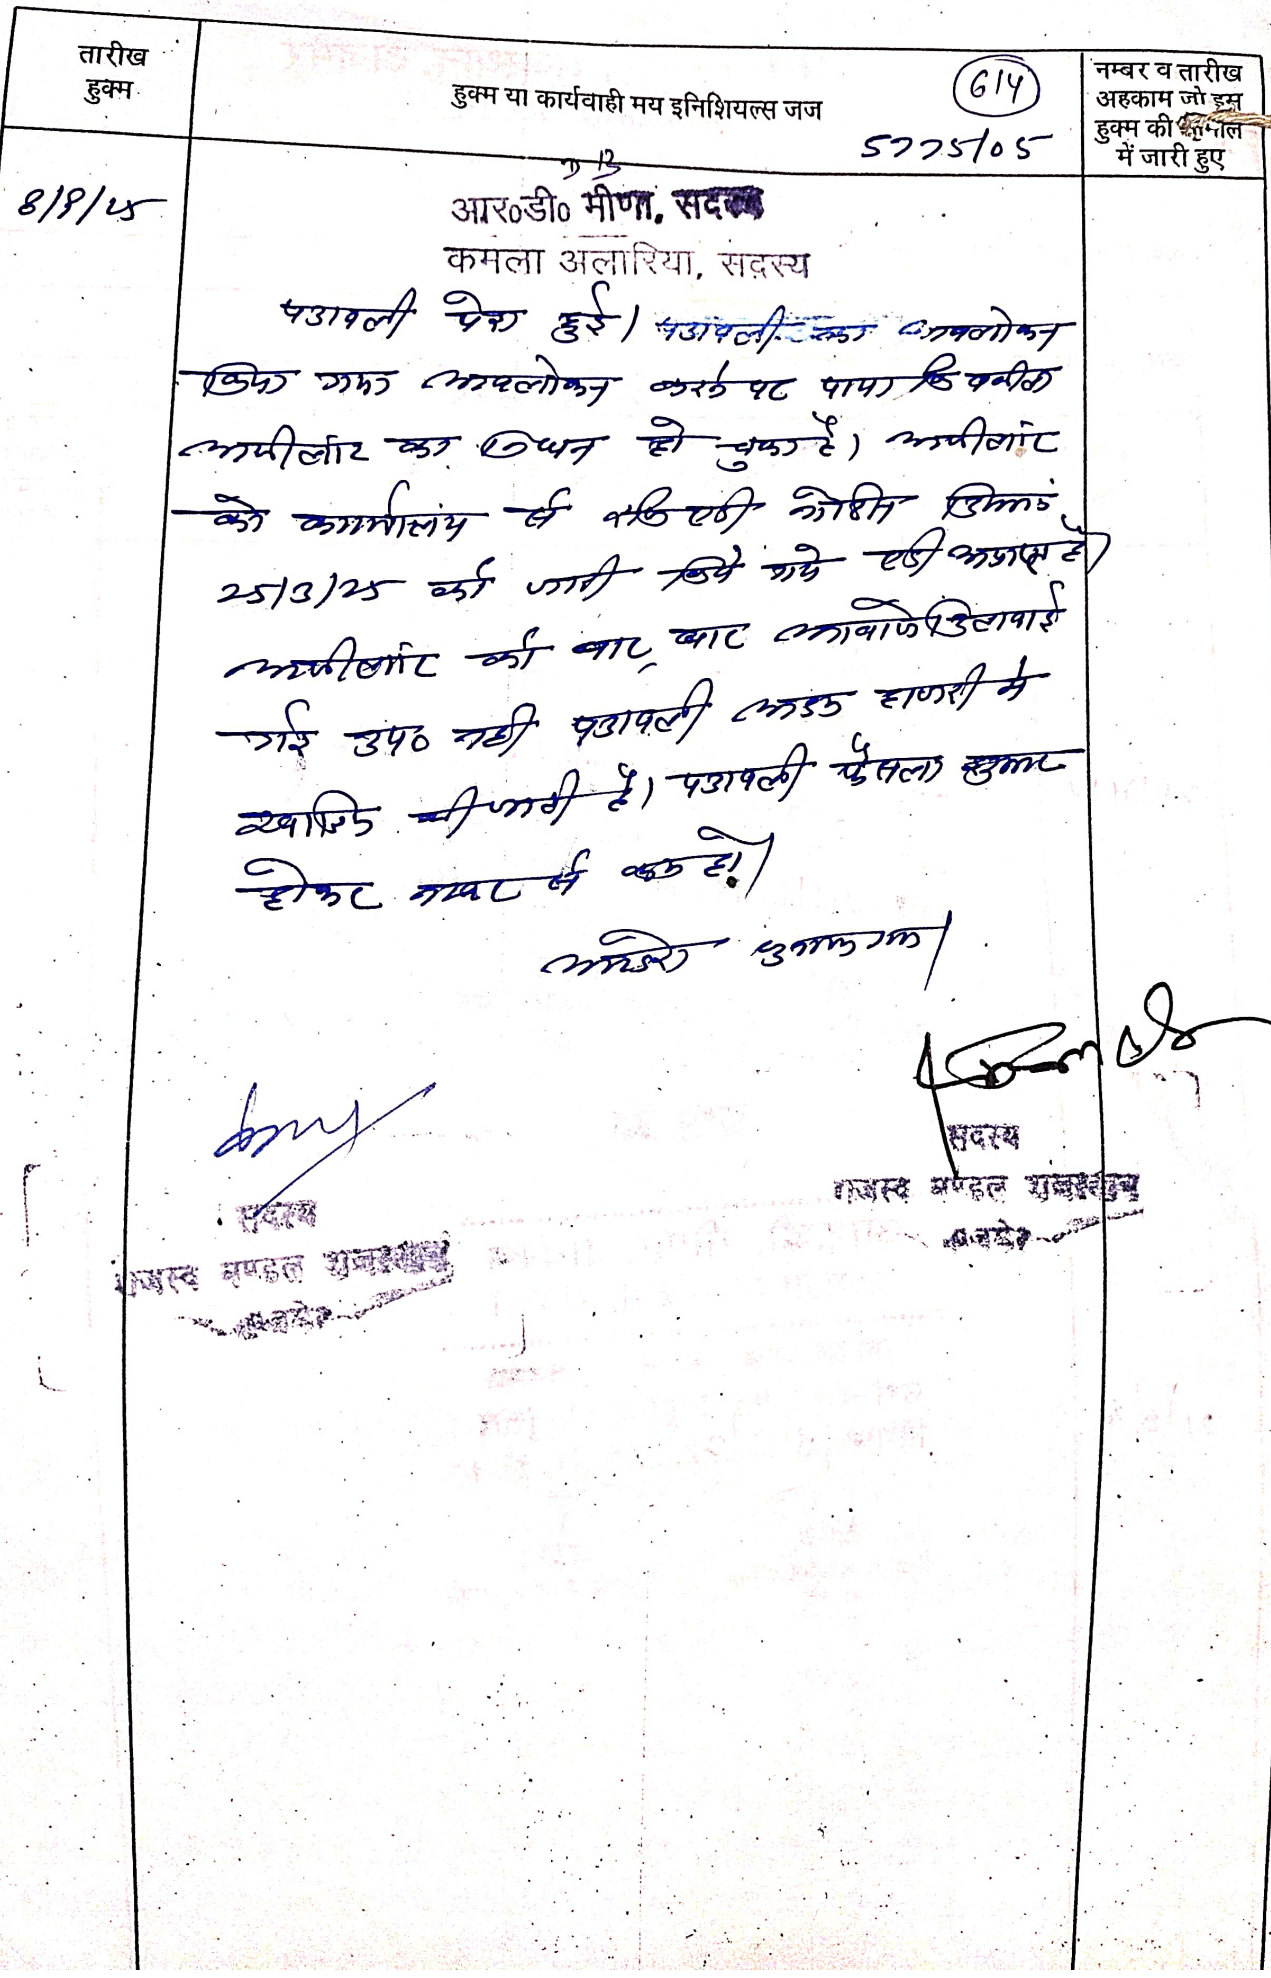 तारीख
हुक्म
हुक्म या कार्यवाही मय इनिशियल्स जज
614
5775/05
नम्बर व तारीख
अहकाम जो इस
हुक्म की तामील
में जारी हुए
8/9/25
DB
आर०डी० मीणा, सदस्य
कमला अलारिया, सदस्य
पत्रावली पेश हुई। पत्रावली का अवलोकन
किया गया अवलोकन करने पर पाया कि वकील
अपीलांट का निधन हो चुका है। अपीलांट
को कार्यालय से रजि एडी नोटिस दिनांक
25/3/25 को जारी किये गये एडी अप्राप्त है।
अपीलांट को बार बार आवाजे दिलवाई
गई उप० नही पत्रावली अदम हाजरी मे
खारिज की जाती है। पत्रावली फैसला शुमार
होकर नम्बर से कम हो।
आदेश सुनाया गया।
सदस्य
राजस्व मण्डल राजस्थान
अजमेर
सदस्य
राजस्व मण्डल राजस्थान
अजमेर